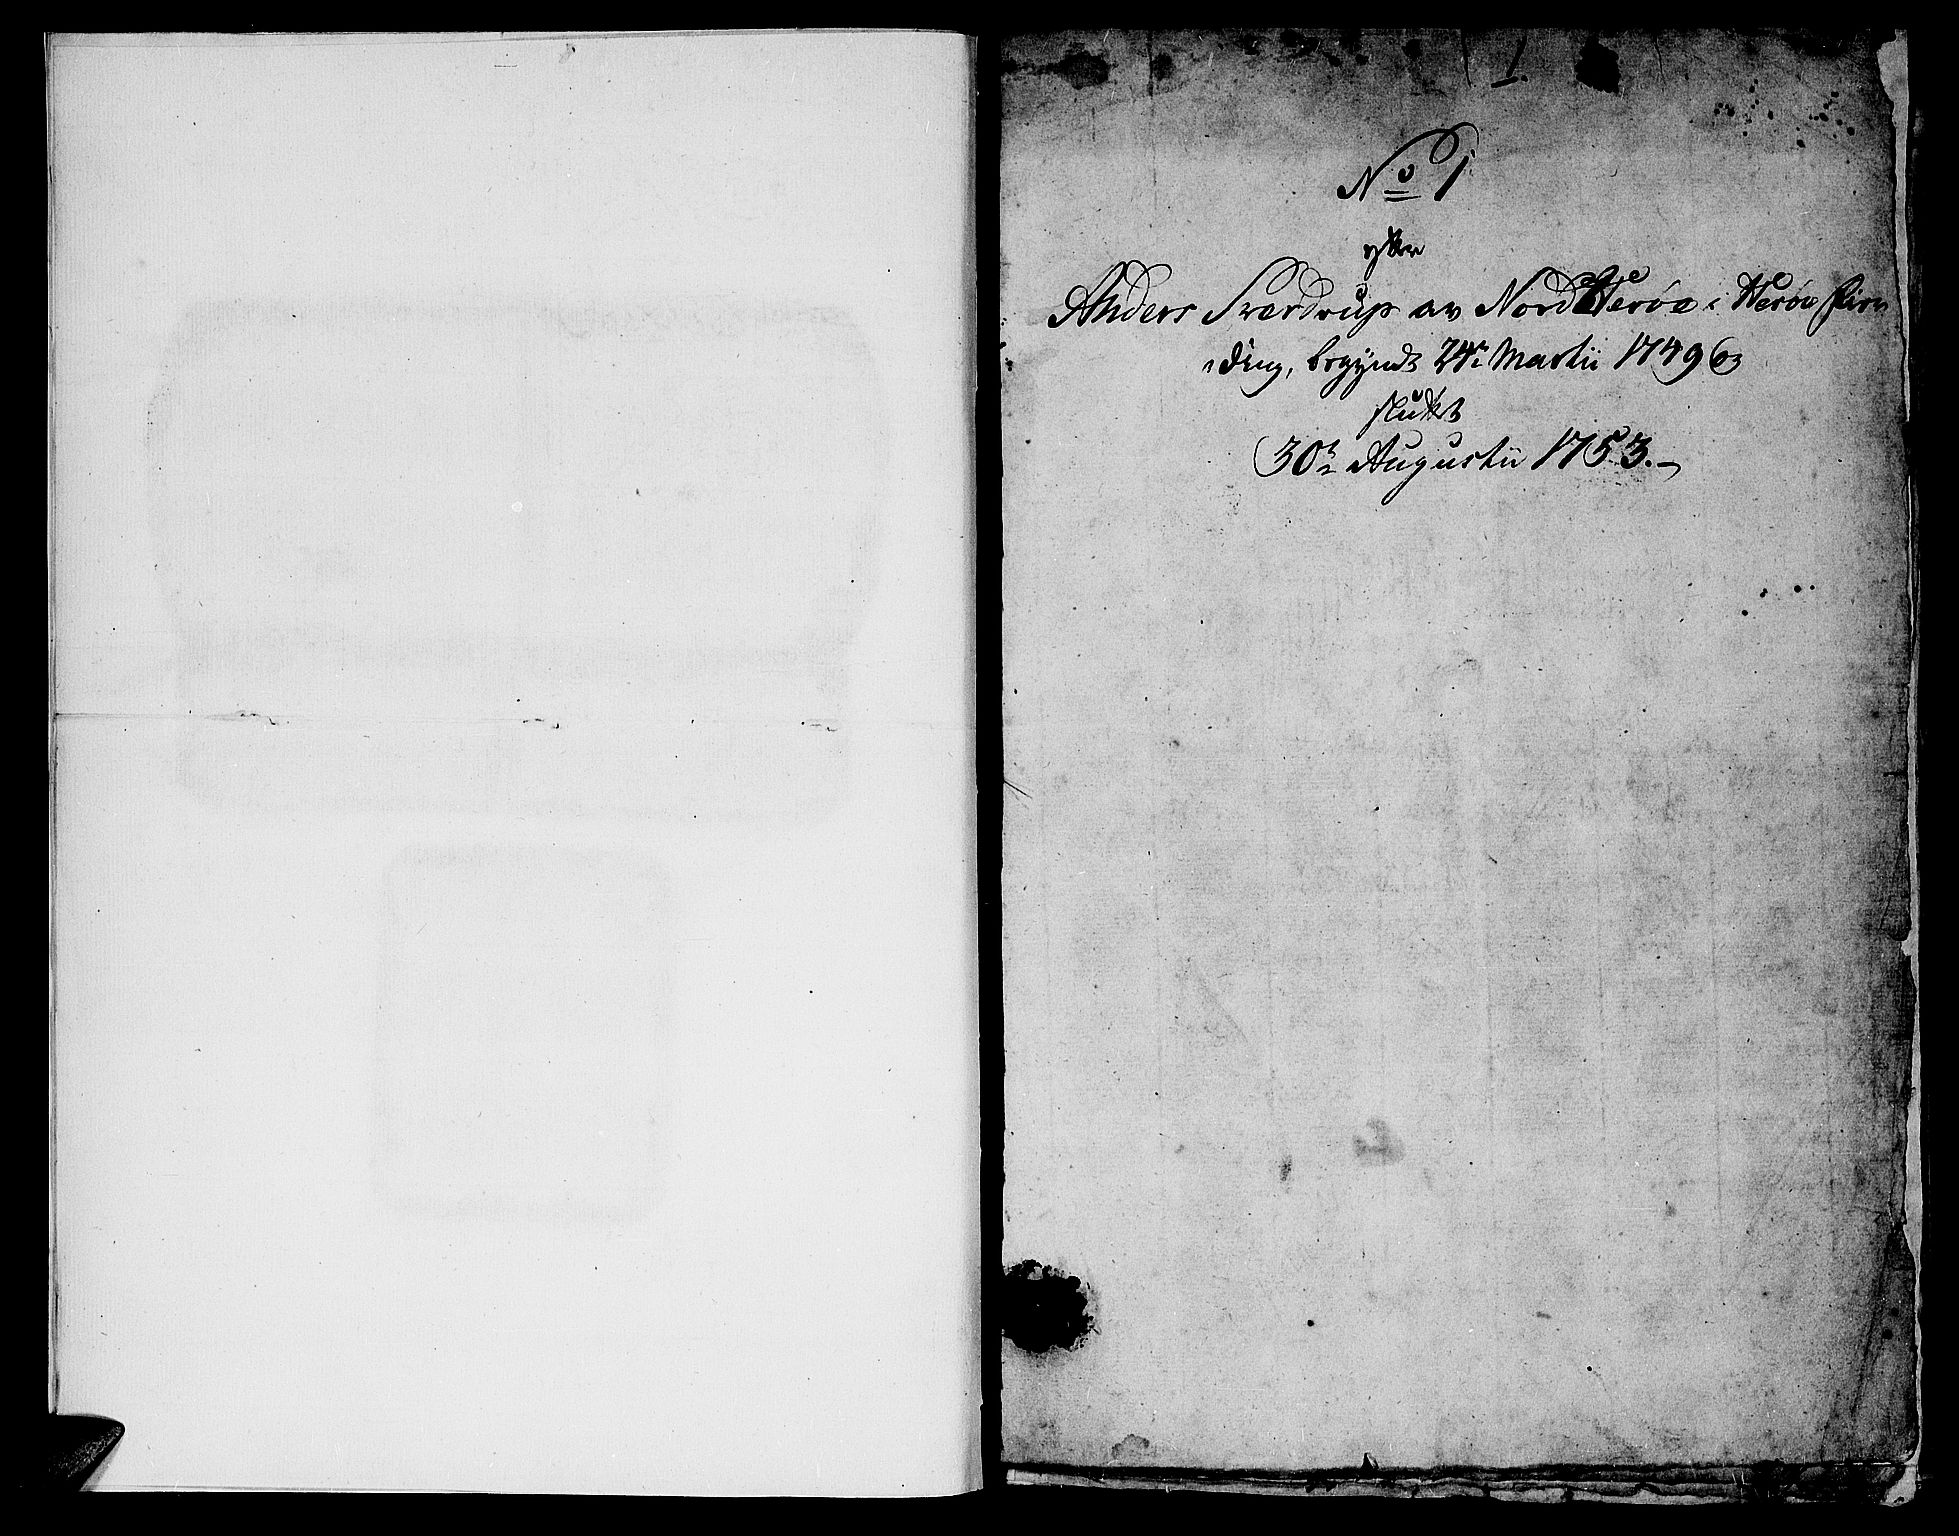 1.
No 1
efter
Anders Sverdrup av Nord Herøe i Herøe fier
ding, begyndt 24de Martii 1749 &
sluttet
30te Augustii 1753.